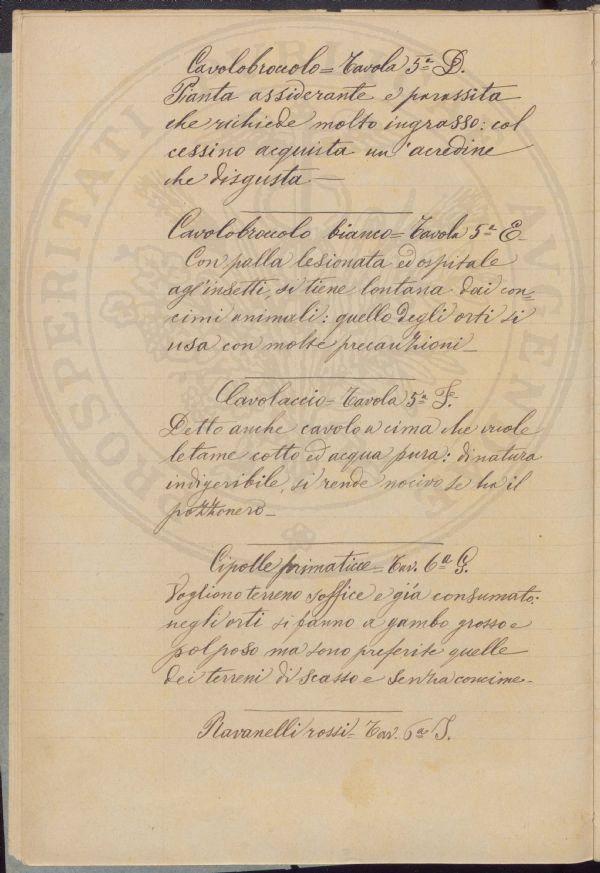 Cavolobroccolo = Tavola 5ª D.
Pianta assiderante e parassita
che richiede molto ingrasso: col
cessino acquista un'acredine
che disgusta —
Cavolobroccolo bianco = Tavola 5ª E.
Con palla lesionata ed ospitale
agl'insetti, si tiene lontana dai con=
cimi animali: quello degli orti si
usa con molte precauzioni —
Cavolaccio = Tavola 5ª F.
Detto anche cavolo a cima che vuole
letame cotto ed acqua pura: di natura
indigeribile, si rende nocivo se ha il
pozzonero —
Cipolle primaticce = Tav. 6ª G.
Vogliono terreno soffice e già consumato:
negli orti si fanno a gambo grosso e
polposo ma sono preferite quelle
dei terreni di scasso e senza concime —
Ravanelli rossi = Tav. 6ª I.
PROSPERITATI PUBLICAE AUGENDAE